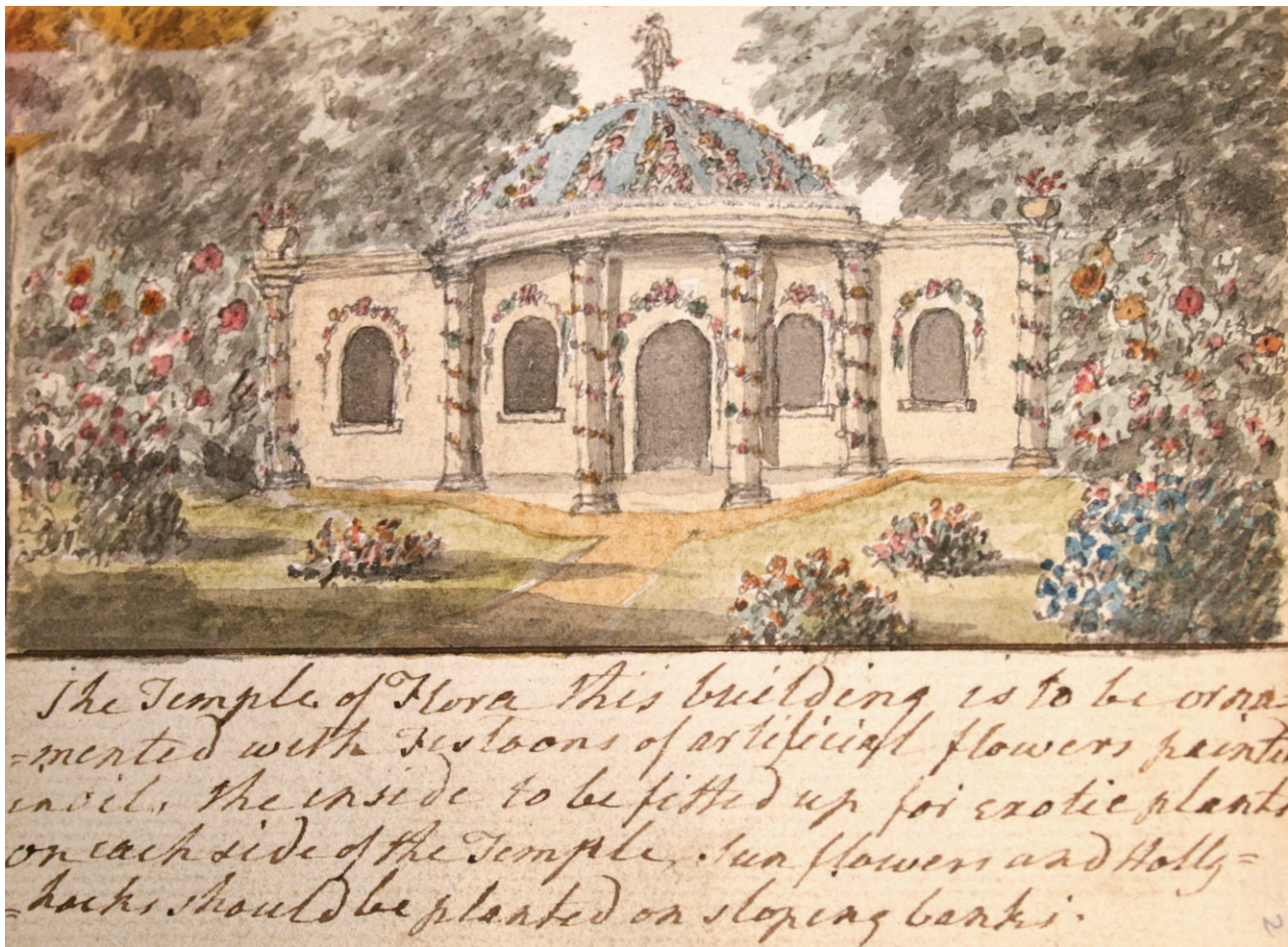 The Temple of Flora this building is to be orna
=mented with Festoons of artificial flowers painted
in oil. the inside to be fitted up for exotic plants
on each side of the Temple, Sun flowers and Holly=
=hocks should be planted on sloping banks.